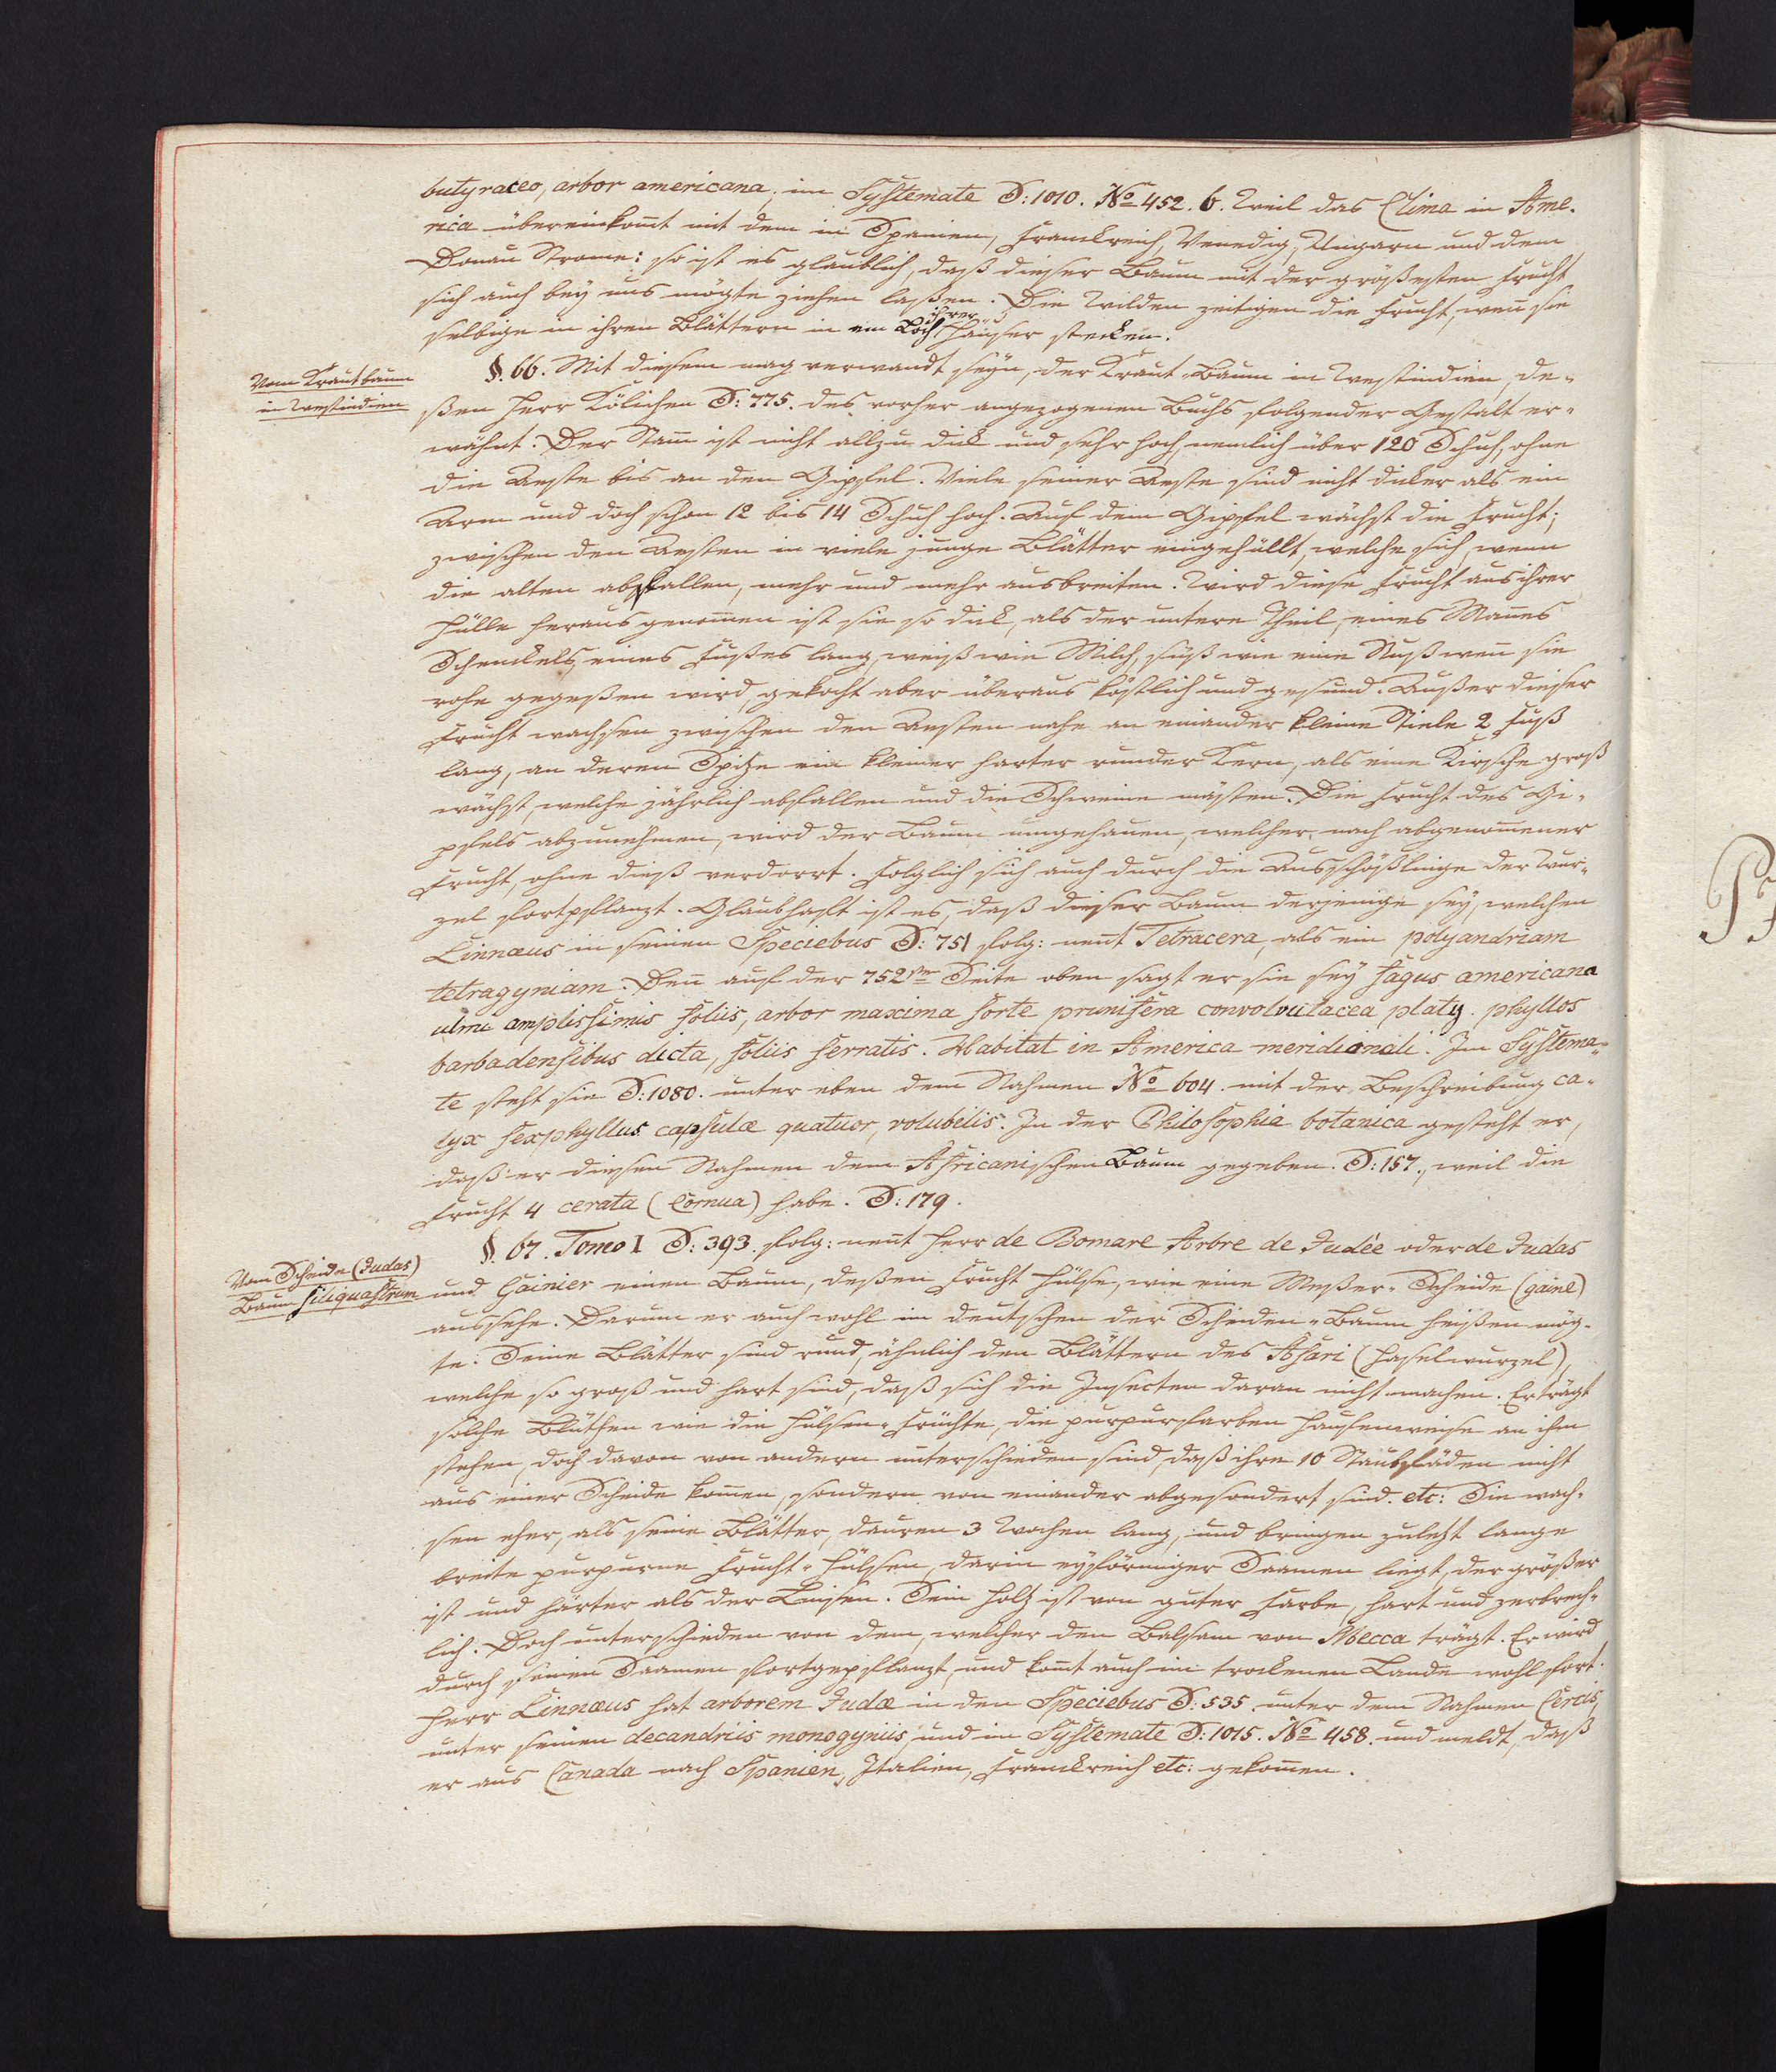 butyraceo, arbor americana, im Systemate S: 1010. No 452. b. Weil das Clima in Ame-
rica übereinkomt mit dem in Spanien, Franckreich, Venedig, Ungarn und dem
Donau Strome: so ist es glaublich, daß dieser Baum mit der größesten Frucht
sich auch bey uns mögte ziehen laßen. Die Wilden zeitigen die Frucht, wen sie
selbige in ihren Blättern in ein Loch ihrer Häuser stecken.
Vom Krautbaum
in Westindien
§. 66. Mit diesem mag verwandt seyn, der Kraut-Baum in Westindien, de-
ßen Herr Kölichen S: 775. des vorher angezogenen Buchs folgender Gestalt er-
wähnt: Der Stam ist nicht allzu dick und sehr hoch, nemlich über 120 Schuh, ohne
die Aeste bis an den Gipfel. Viele seiner Aeste sind nicht dicker als ein
Arm und doch schon 12 bis 14 Schuh hoch. Auf dem Gipfel wächst die Frucht;
zwischen den Aesten in viele junge Blätter eingehüllt, welche sich, wenn
die alten abfallen, mehr und mehr ausbreiten. Wird diese Frucht aus ihrer
Hülle heraus genomen ist sie so dick, als der untere Theil, eines Manes
Schenckels, eines Fußes lang, weiß wie Milch, süß wie eine Nuß wen sie
rohe gegeßen wird, gekocht aber überaus köstlich und gesund. Außer dieser
Frucht wachsen zwischen den Aesten nahe an einander kleine Stiele 2 Fuß
lang, an deren Spitze ein kleiner harter runder Kern, als eine Kirsche groß
wächst, welche jährlich abfallen und die Schweine mästen. Die Frucht des Gi-
pfels abzunehmen, wird der Baum umgehauen, welcher, nach abgenomener
Frucht, ohne dieß verdorrt. Folglich sich auch durch die Ausschößlinge der Wur-
zel fortpflanzt. Glaubhaft ist es, daß dieser Baum derjenige sey, welchen
Linnæus in seinen Speciebus S: 751 folg: nent Tetracera, als ein polyandriam
tetragyniam. Den auf der 752ten Seite oben sagt er sie sey fagus americana
ulmi amplissimis foliis, arbor maxima forte prunifera convolvulacea platy. phyllos
barbadensibus dicta, foliis serratis. Habitat in America meridionali. Im Systema-
te steht sie S: 1080. unter eben dem Nahmen No 604. mit der Beschreibung ca-
lyx sexphyllus capsulæ quatuor, volubilis. In der Philosophia botanica gesteht er,
daß er diesen Nahmen dem Africanischen Baum gegeben. S: 157., weil die
Frucht 4 cerata (Cornua) habe. S: 179.
Vom Scheide (Judas)
Baum Siliquastrum
§. 67. Tomo I S: 393. folg: nent Herr de Bomare Arbre de Judée oder de Judas
und Gainier einen Baum, deßen Frucht Hülse, wie eine Meßer-Scheide (gaine)
aussehe. Darum er auch wohl im deutschen der Scheiden-Baum heißen mög-
te. Seine Blätter sind rund, ähnlich den Blättern des Asari (Haselwurzel),
welche so groß und hart sind, daß sich die Insecten daran nicht machen. Er trägt
solche Blüthen wie die Hülsen-Früchte, die purpurfarben haufenweise an ihm
stehen, doch davon von andern unterschieden sind, daß ihre 10 Staubfäden nicht
aus einer Scheide komen, sondern von einander abgesondert sind. etc: Sie wach-
sen eher, als seine Blätter, dauren 3 Wochen lang, und bringen zuletzt lange
breite purpurne Frucht-Hülsen, darin eyförmiger Saamen liegt, der größer
ist und härter als der Linsen. Sein Holtz ist von guter Farbe, hart und zerbrech-
lich. Doch unterschieden von dem, welcher den Balsam von Mecca trägt. Er wird
durch seinen Saamen fortgepflanzt, und komt auch im trockenen Lande wohl fort.
Herr Linnæus hat arborem Judæ in den Speciebus S: 535. unter dem Nahmen Cercis,
unter seinen decandriis monogyniis, und im Systemate S: 1015. No 458. und meldt, daß
er aus Canada nach Spanien, Italien, Franckreich etc: gekomen.